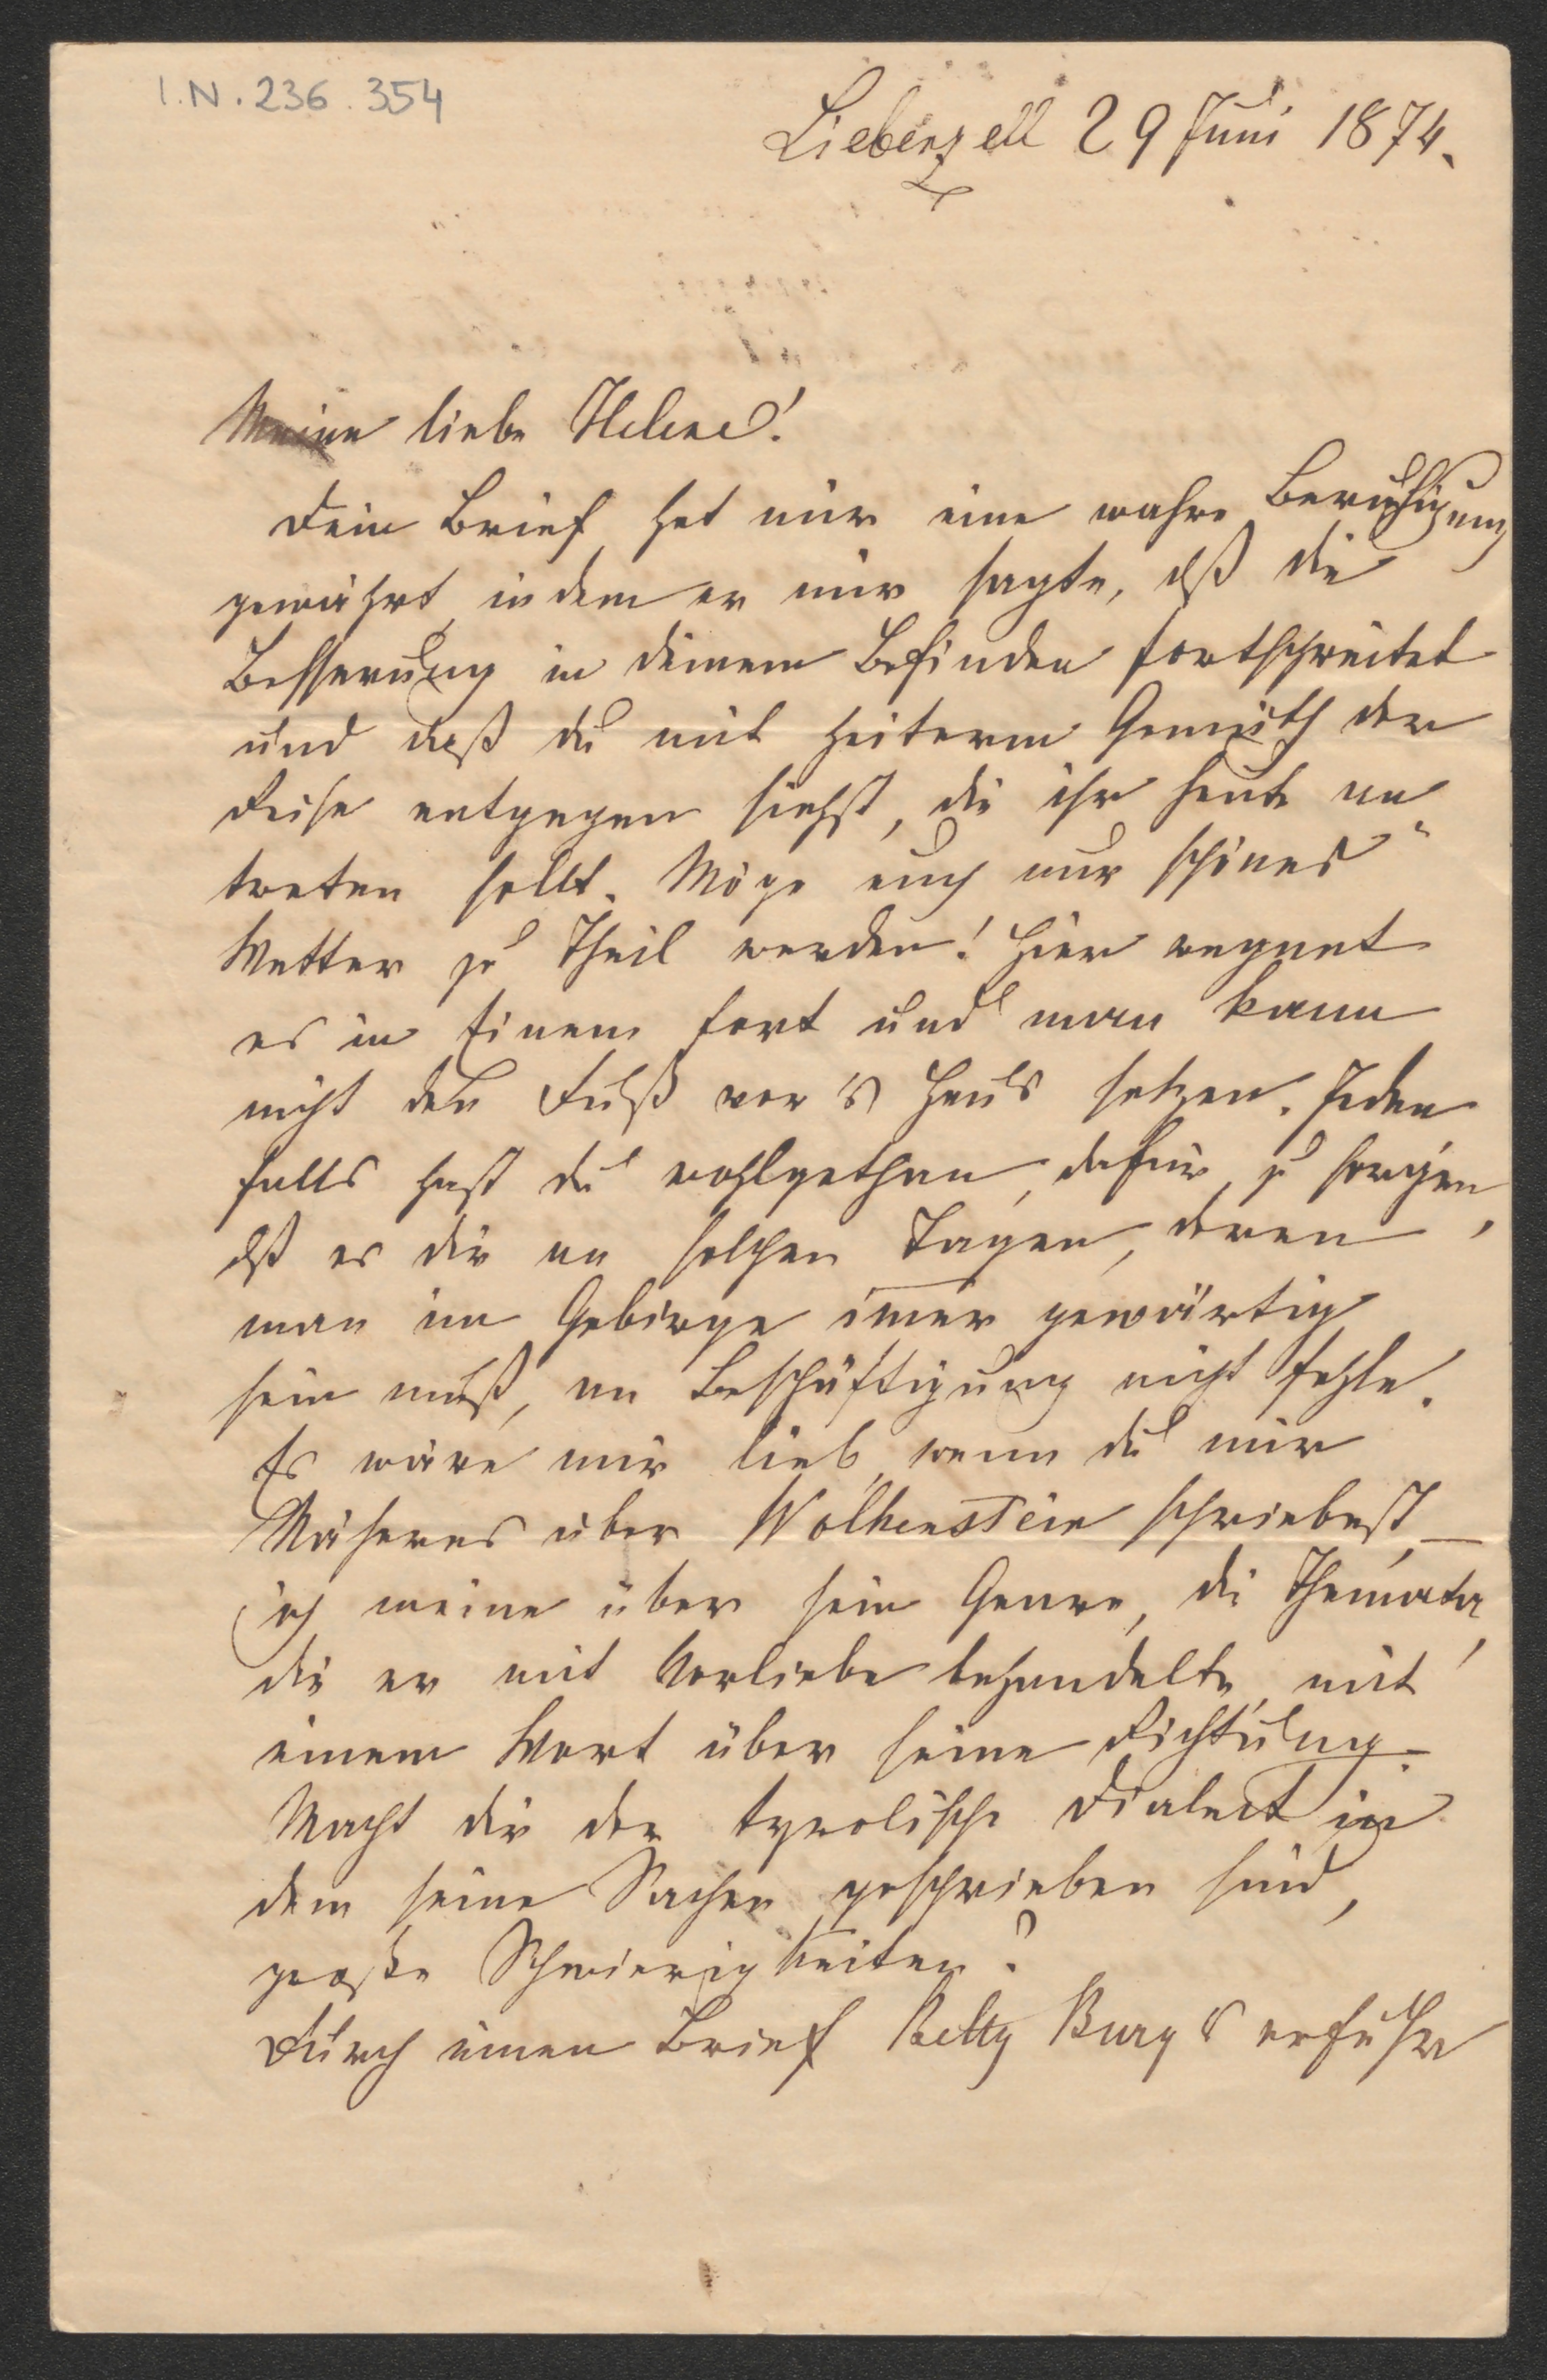 I.N. 236.354
Liebenzell 29 Juni 1874.
Meine liebe Helene!
Dein Brief hat mir eine wahre Beruhigung
gewährt, indem er mir sagte, dß die
Besserung in deinem Befinden fortschreitet
und daß du mit heiterm Gemüth der
Reise entgegen siehst, die ihr heute an
treten sollt. Möge euch nur schönes
Wetter zu Theil werden! Hier regnet
es in Einem fort und man kann
nicht den Fuß vor's Haus setzen. Jeden
falls hast du wohlgethan, dafür zu sorgen,
dß es dir an solchen Tagen, deren
man im Gebirge im̅er gewärtig
sein muß, an Beschäftigung nicht fehle.
Es wäre mir lieb, wenn du mir
Näheres über Wolkenstein schriebest, —
ich meine über sein Genre, die Themata,
die er mit Vorliebe behandelte, mit
einem Wort über seine Richtung.
Macht dir der tyrolische Dialect in
dem seine Sachen geschrieben sind,
große Schwierigkeiten?
Durch einen Brief Betty Burgs erfuhr